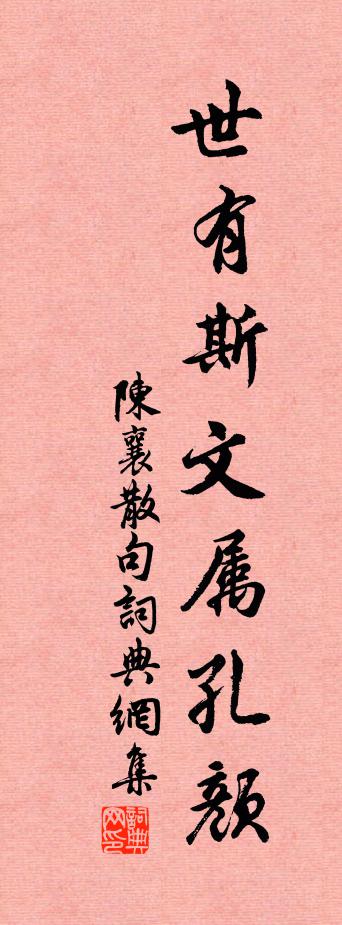 世有斯文属孔顔
陳襄散句詞典網集
詞典
网印